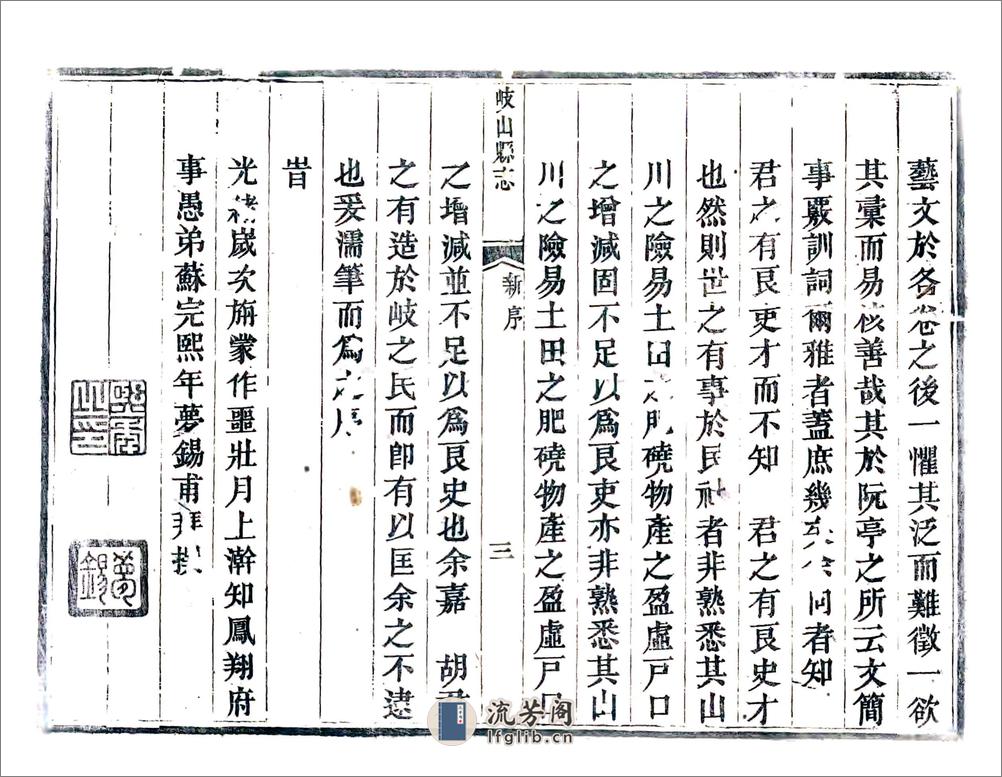 藝文於各卷之後一懼其泛而難徵一欲
其彙而易核善哉其於阮亭之所云文簡
事覈訓詞爾雅者蓋庶幾矣余向者知
君之有良吏才而不知　君之有良史才
也然則世之有事於民社者非熟悉其山
川之險易土田之肥磽物產之盈虛戸口
之增減固不足以爲良吏亦非熟悉其山
岐山縣志
新序
三
川之險易土田之肥磽物產之盈虛戸口
之增減並不足以爲良史也余嘉　胡君
之有造於岐之民而卽有以匡余之不逮
也爰濡筆而爲之序
旹
光緒歲次旃蒙作噩壯月上澣知鳳翔府
事愚弟蘇完熙年夢錫甫拜撰
熙年之印
夢錫
流芳阁
lfglib.cn